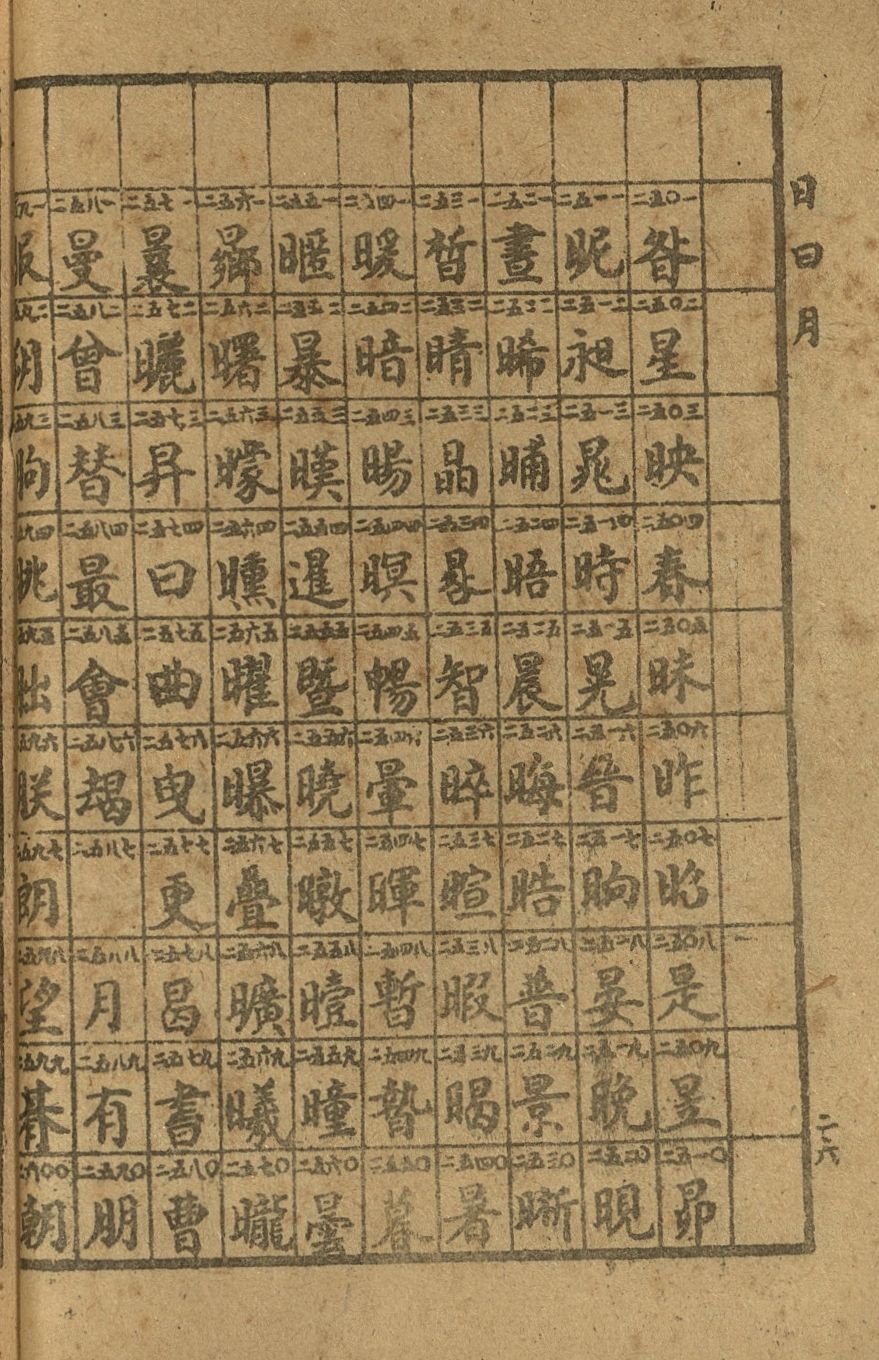 日曰月
二五〇一 昝
二五〇二 星
二五〇三 映
二五〇四 春
二五〇五 昧
二五〇六 昨
二五〇七 昭
二五〇八 是
二五〇九 昱
二五一〇 昴
二五一一 昵
二五一二 昶
二五一三 晁
二五一四 時
二五一五 晃
二五一六 晉
二五一七 晌
二五一八 晏
二五一九 晚
二五二〇 晛
二五二一 晝
二五二二 晞
二五二三 晡
二五二四 晤
二五二五 晨
二五二六 晦
二五二七 晧
二五二八 普
二五二九 景
二五三〇 晰
二五三一 晳
二五三二 晴
二五三三 晶
二五三四 晷
二五三五 智
二五三六 晬
二五三七 暄
二五三八 暇
二五三九 暍
二五四〇 暑
二五四一 暖
二五四二 暗
二五四三 暘
二五四四 暝
二五四五 暢
二五四六 暈
二五四七 暉
二五四八 暫
二五四九 暬
二五五〇 暮
二五五一 暱
二五五二 暴
二五五三 暵
二五五四 暹
二五五五 暨
二五五六 曉
二五五七 暾
二五五八 曀
二五五九 曈
二五六〇 曇
二五六一 曏
二五六二 曙
二五六三 曚
二五六四 曛
二五六五 曜
二五六六 曝
二五六七 疊
二五六八 曠
二五六九 曦
二五七〇 曨
二五七一 曩
二五七二 曬
二五七三 昇
二五七四 曰
二五七五 曲
二五七六 曳
二五七七 更
二五七八 曷
二五七九 書
二五八〇 曹
二五八一 曼
二五八二 曾
二五八三 替
二五八四 最
二五八五 會
二五八六 朅
二五八七
二五八八 月
二五八九 有
二五九〇 朋
五九一 服
五九二 朔
五九三 朐
五九四 朓
五九五 朏
五九六 朕
二五九七 朗
二五九八 望
二五九九 朞
二六〇〇 朝
二六